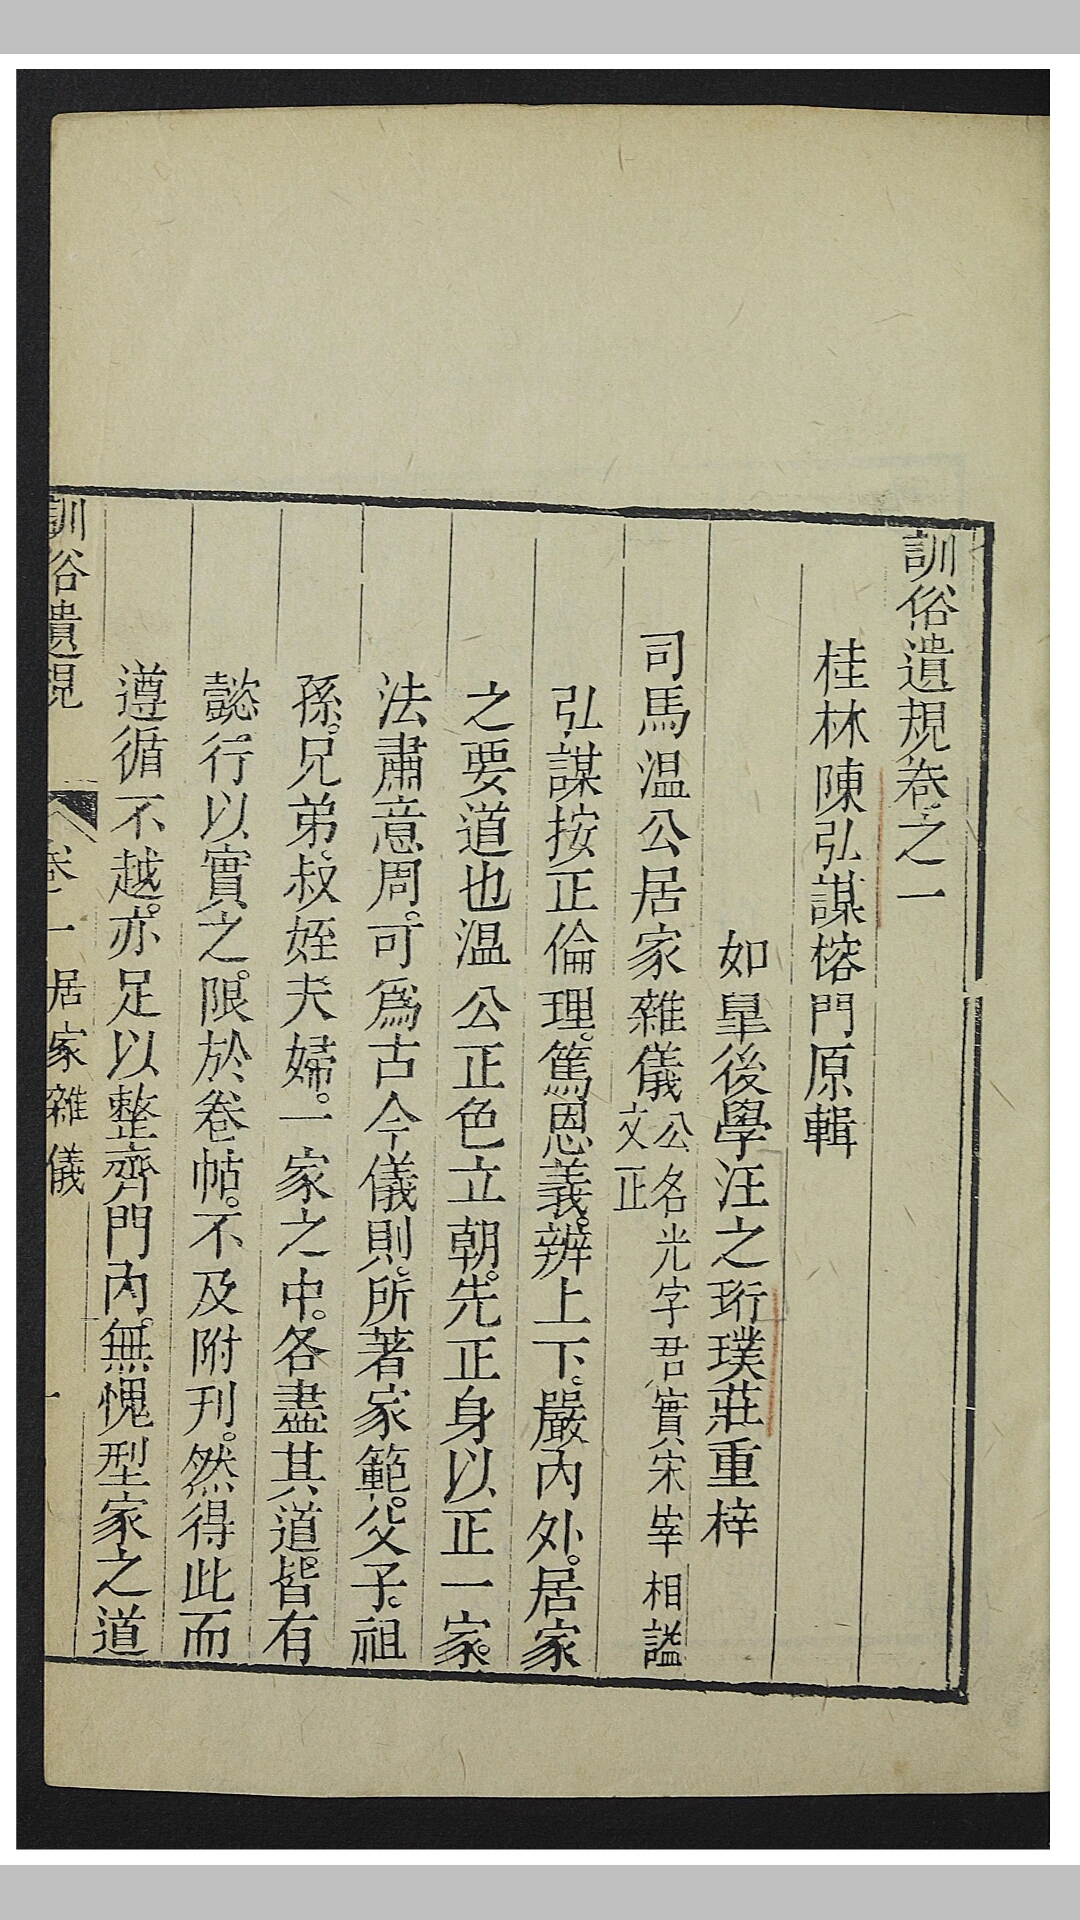 訓俗遺規卷之一
桂林陳弘謀榕門原輯
如臯後學汪之珩璞莊重梓
司馬温公居家雜儀公名光字君實宋宰相謚
文正
弘謀按正倫理。篤恩義。辨上下。嚴內外。居家
之要道也温公正色立朝。先正身以正一家。
法肅意周。可爲古今儀則。所著家範。父子。祖
孫。兄弟、叔姪、夫婦。一家之中。各盡其道。皆有
懿行以實之。限於卷帖。不及附刊。然得此而
遵循不越。亦足以整齊門內。無愧型家之道
訓俗遺規
卷一 居家雜儀
一